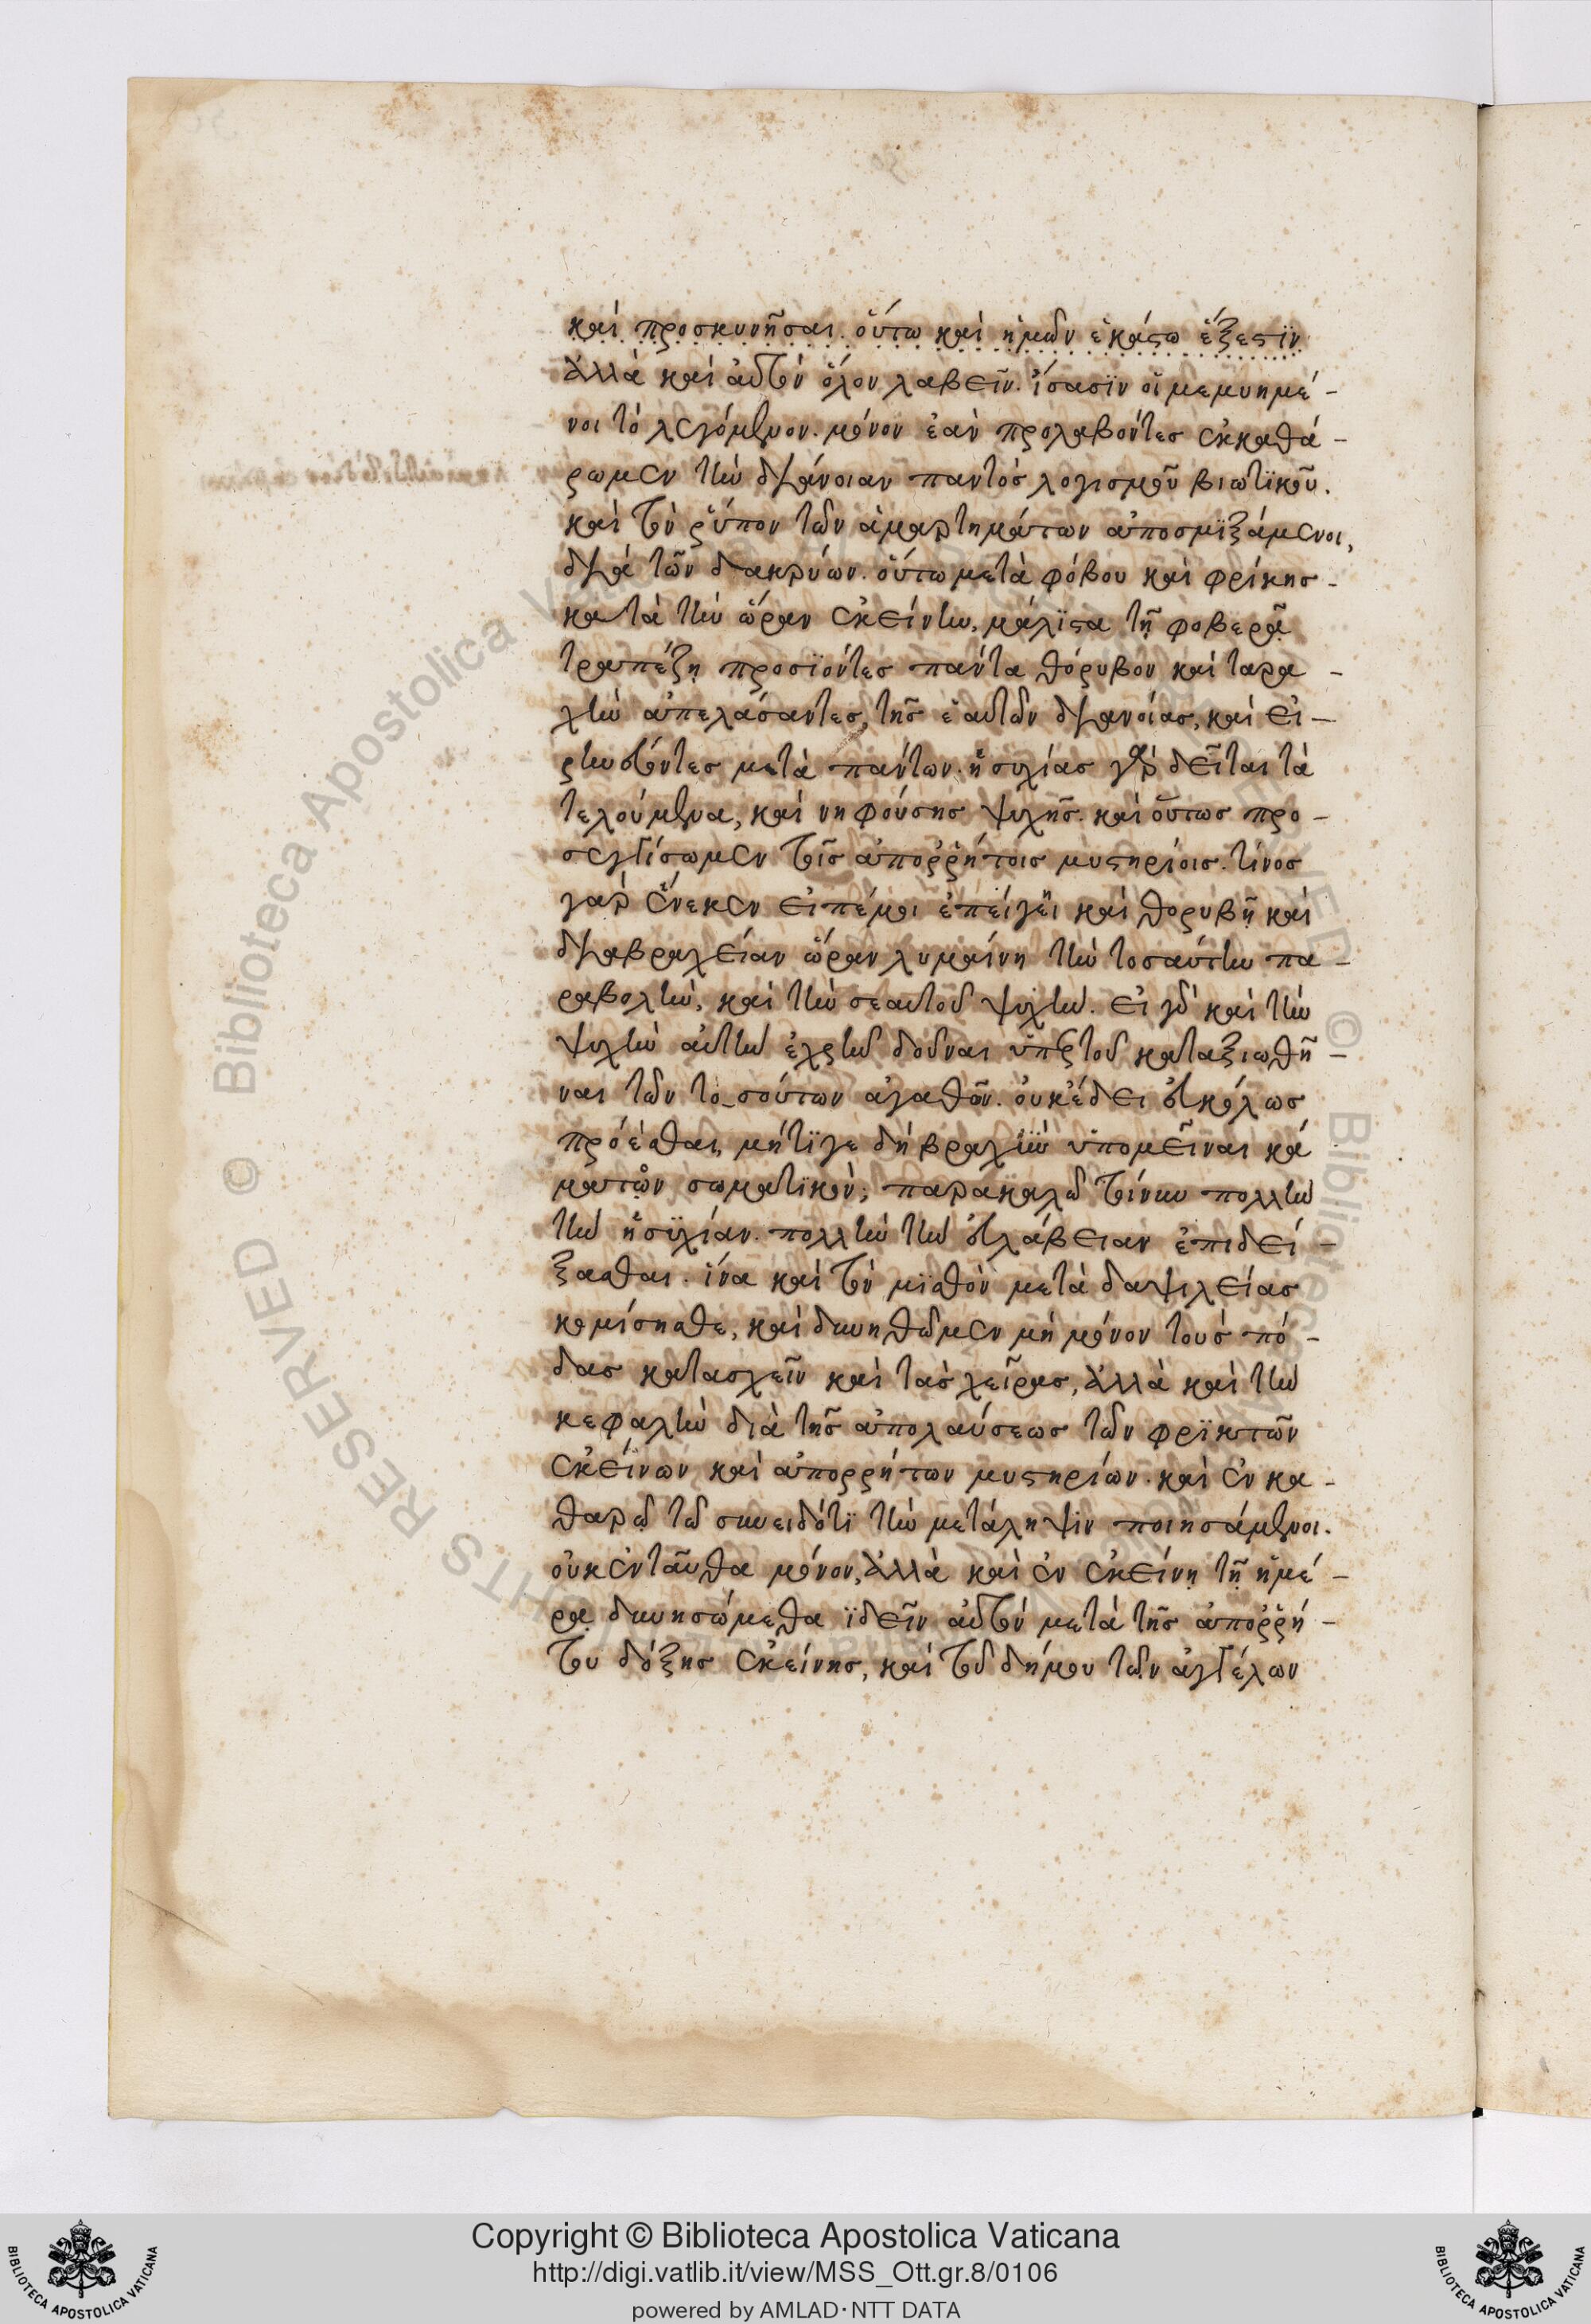 καὶ προσκυνῆσαι. οὕτω καὶ ἡμῶν ἑκάστω ἔξεστϊν
ἀλλὰ καὶ αὐτὸν ὅλον λαβεῖν. ἴσασϊν οἱ μεμυημέ-
νοι τὸ λεγόμενον. μόνον ἐὰν προλαβόντες ἐκκαθά-
ρωμεν τὴν διάνοιαν παντὸς λογισμοῦ βιωτϊκοῦ.
καὶ τὸν ῥύπον τῶν ἁμαρτημάτων ἀποσμϊξάμενοι,
διὰ τῶν δακρύων. οὕτω μετὰ φόβου καὶ φρίκης-
κατὰ τὴν ὥραν ἐκείνην, μάλϊστα τῇ φοβερᾷ
τραπέζῃ προσϊόντες πάντα θόρυβον καὶ ταρα-
χὴν ἀπελάσαντες, τῆς ἑαυτῶν διανοίας, καὶ εἰ-
ρηνεύοντες μετὰ πάντων. ἡσυχίας γὰρ δεῖται τὰ
τελούμενα, καὶ νηφούσης ψυχῆς. καὶ οὕτως προ-
σεγγίσωμεν τοῖς ἀπορῥήτοις μυστηρίοις. τίνος
γὰρ ἕνεκεν εἰπέμοι ἐπείγει καὶ θορυβῇ καὶ
διαβραχεῖαν ὥραν λυμαίνη τὴν τοσαύτην πα-
ραβολὴν, καὶ τὴν σεαυτοῦ ψυχὴν. εἰ γὰρ καὶ τὴν
ψυχὴν αὐτὴν ἐχρῆν δοῦναι ὑπὲρ τοῦ καταξιωθῆ-
ναι τῶν το_σούτων ἀγαθῶν. οὐκέδει εὐκόλως
πρόέσθαι, μήτϊγε δὴ βραχὺν ὑπομεῖναι κά
ματον σωματϊκὸν; παρακαλῶ τοίνυν πολλὴν
τὴν ἡσϋχίαν. πολλὴν τὴν εὐλάβειαν ἐπιδεί-
ξασθαι. ἵνα καὶ τὸν μϊσθὸν μετὰ δαψιλείας
κομίσησθε, καὶ δυνηθῶμεν μὴ μόνον τοὺς πό-
δας κατασχεῖν καὶ τὰς χεῖρας, ἀλλὰ καὶ τὴν
κεφαλὴν διὰ τῆς ἀπολαύσεως τῶν φρϊκτῶν
ἐκείνων καὶ ἀπορρήτων μυστηρίων. καὶ ἐν κα-
θαρῷ τῷ συνειδότϊ τὴν μετάληψϊν ποιησάμενοι.
οὐκ ἐνταῦθα μόνον, ἀλλὰ καὶ ἐν ἐκείνῃ τῇ ἡμέ-
ρᾳ δυνησώμεθα ϊδεῖν αὐτὸν μετὰ τῆς ἀπορῥή-
του δόξης ἐκείνης, καὶ τοῦ δήμου τῶν ἀγγέλων
Copyright © Biblioteca Apostolica Vaticana
http://digi.vatlib.it/view/MSS_Ott.gr.8/0106
powered by AMLAD·NTT DATA